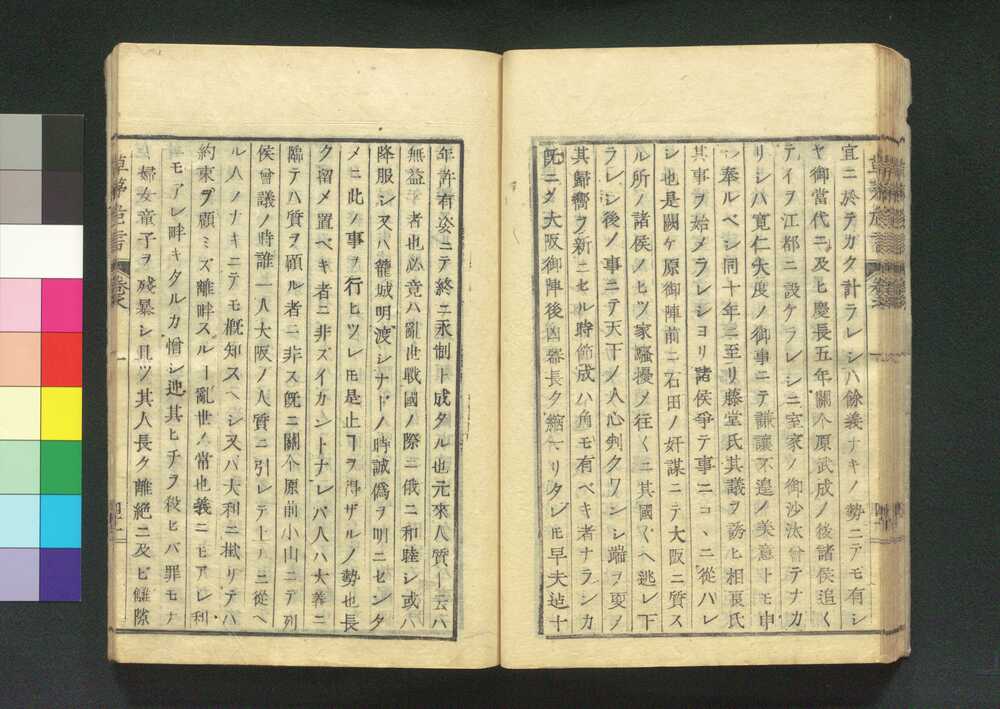 宜ニ於テカク計ラレシハ餘義ナキノ勢ニテモ有シ
ヤ御當代ニ及ヒ慶長五年關个原武成ノ後諸侯追〱
テイヲ江都ニ設ケラレシニ室家ノ御沙汰曾テナカ
リシハ寛仁大度ノ御事ニテ謙讓不遑ノ美意トモ申
シ奉ルベシ同十年ニ至リ藤堂氏其議ヲ誘ヒ相良氏
其事ヲ始メラレショリ諸侯爭テ事ニコヽニ從ハレ
シ也是關ケ原御陣前ニ石田ノ奸謀ニテ大阪ニ質ス
ル所ノ諸侯ノヒツ家騷擾ノ往〱ニ其國〱ヘ逃レ下
ラレシ後ノ事ニテ天下ノ人心判クワシシ端ヲ更ノ
其歸嚮ヲ新ニセル時節成ハ角モ有ベキ者ナランカ
既ニ大阪御陣後凶器長ク纏ヘリタレモ早夫迨十
年許有姿ニテ終ニ永制ト成タル也元來人質ト云ハ
無益ノ者也必竟ハ亂世戰國ノ際ニ俄ニ和睦シ或ハ
降服シ又ハ籠城明渡シナドノ時誠僞ヲ明ニセンタ
メニ此ノ事ヲ行ヒツレモ是止ヿヲ得ザルノ勢也長
ク留メ置ベキ者ニ非ズイカントナレバ人ハ大義ニ
臨テハ質ヲ顧ル者ニ非ス既ニ關个原前小山ニテ列
侯會議ノ時誰一人大阪ノ人質ニ引レテ上ルニ從ヘ
ル人ノナキニテモ概知スヘシ又バ大利ニ拠リテハ
約束ヲ顧ミズ離畔スルヿ亂世ノ常也義ニモアレ利
モアレ畔キタルカ惜シ迚其ヒチヲ役ヒバ罪モナ
婦女童子ヲ殘暴シ且ツ其人長ク離絶ニ及ビ讎隙